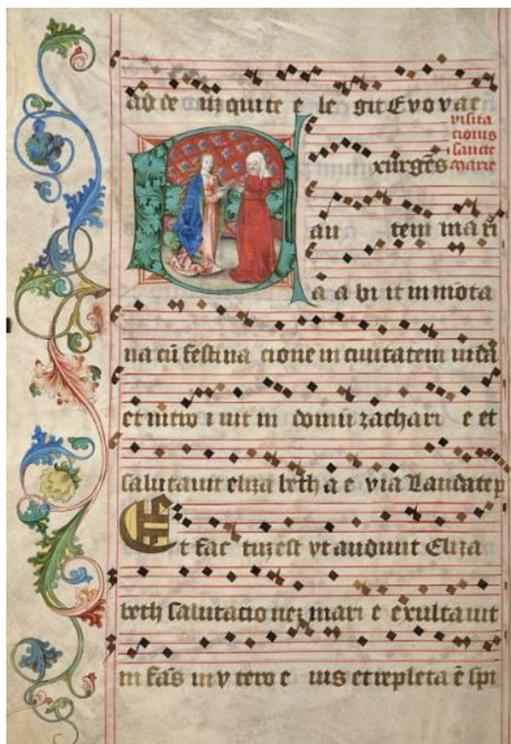 ad ce iuz quite e le git Evovae
visita
cionis
sancte
marie
xurgēs
au tem mari
a a bi it in mōta
na cū festina cione in ciuitatem iuda
et intro i uit in domū zachari e et
salutauit eliza beth a e via Laudate p
Et fac tuz est vt audiuit Eliza
beth salutacionez mari e exultauit
in fās in v tero e ius et repleta ē spi